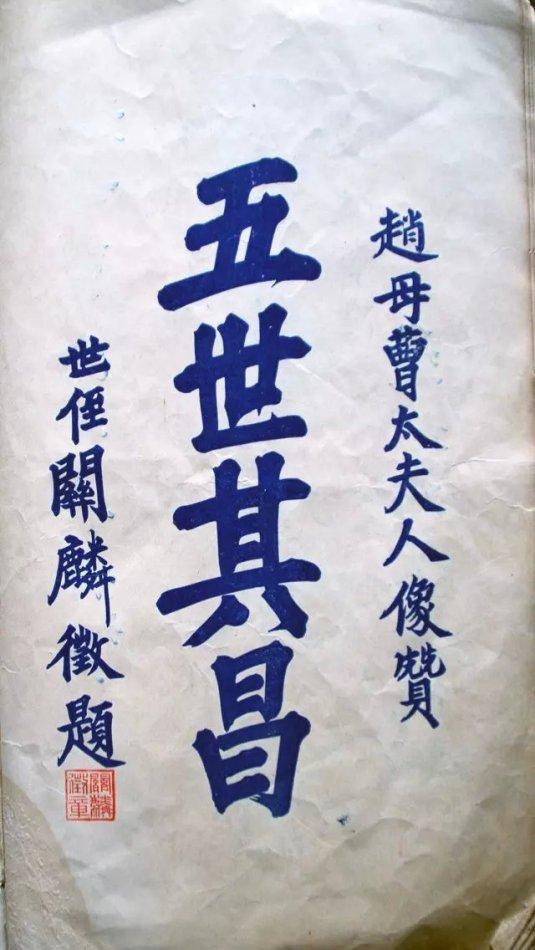 趙母曹太夫人像贊
五世其昌
世侄關麟徵題
關麟徵章